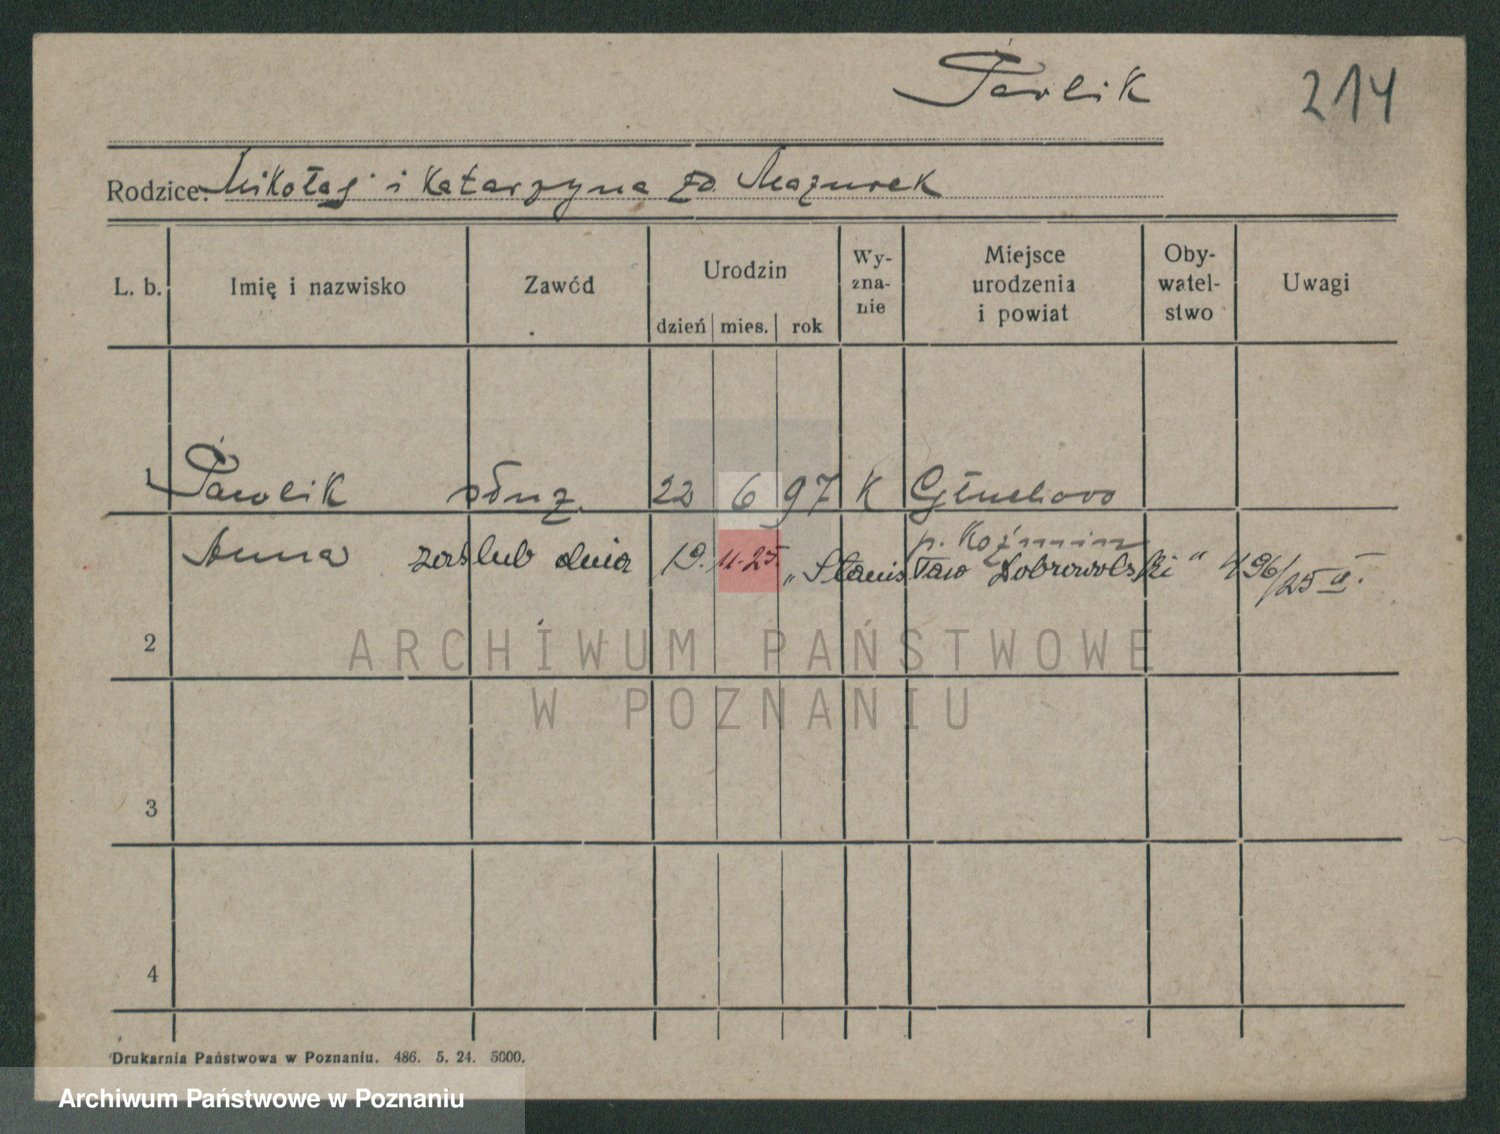 Pawlik 214
Rodzice: Mikołaj i Katarzyna zd. Mazurek
L. b. Imię i nazwisko Zawód Urodzin dzień mies. rok Wy-zna-nie Miejsce urodzenia i powiat Oby-watel-stwo Uwagi
Pawlik służ. 22 6 97 K Głuchowo
p. Koźmin
Anna zaślub dnia 19. 11. 25. „Stanisław Dobrowolski" 496/25 II.
2
ARCHIWUM PAŃSTWOWE
W POZNANIU
3
4
Drukarnia Państwowa w Poznaniu. 486. 5. 24. 5000.
Archiwum Państwowe w Poznaniu